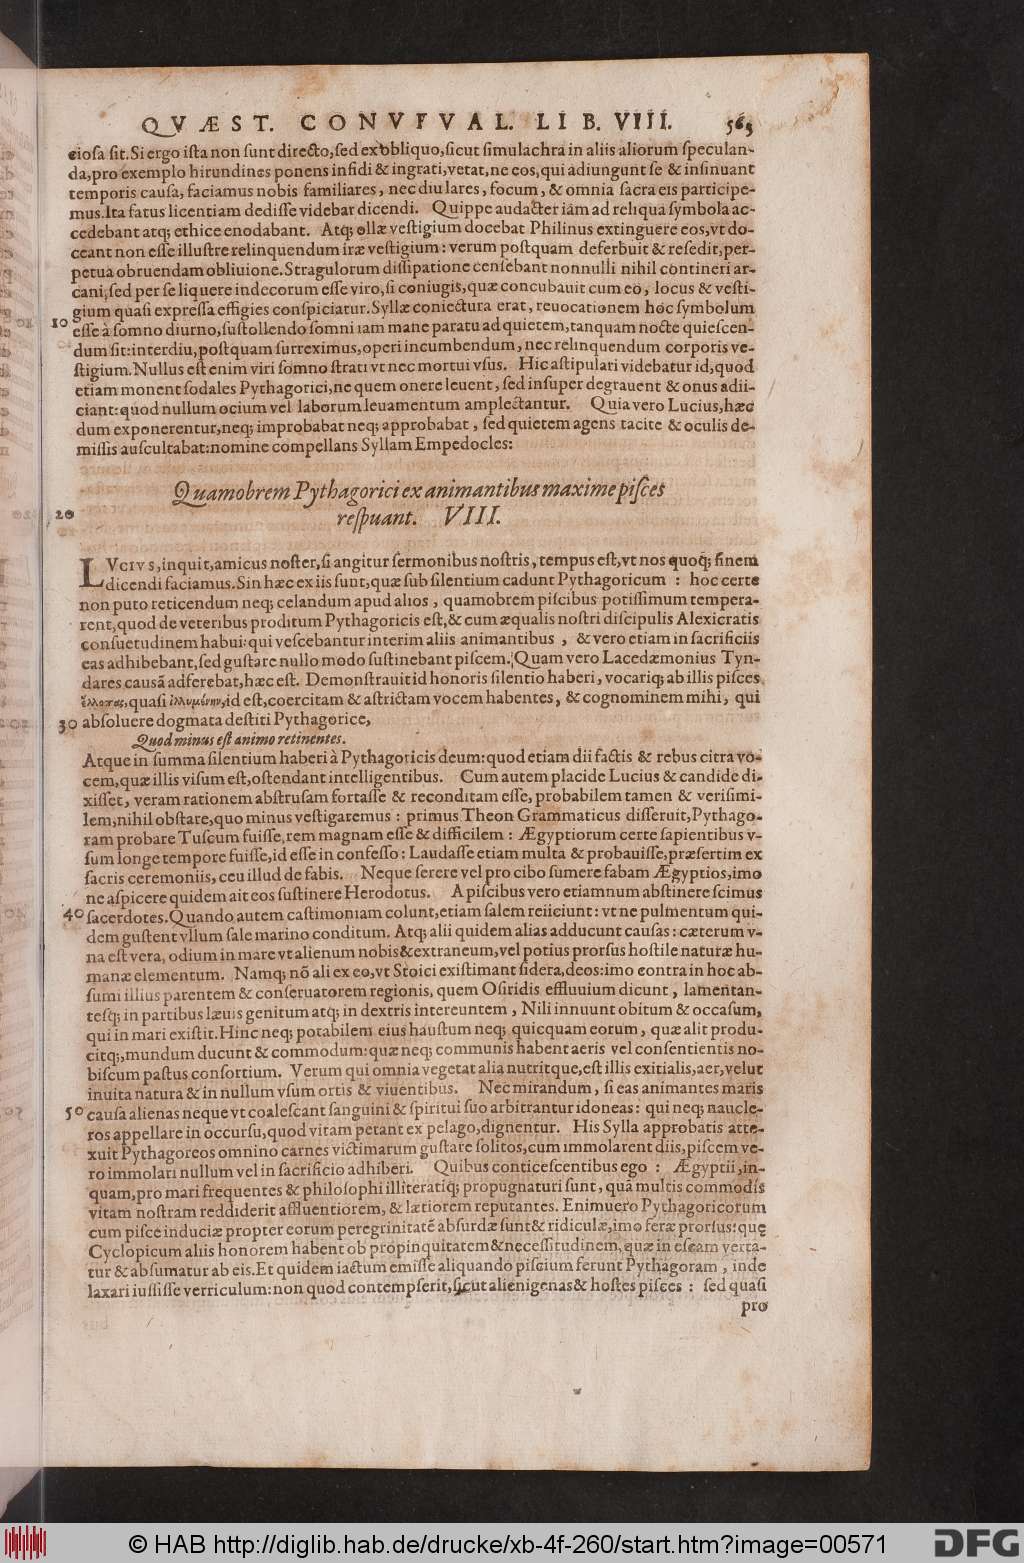 QVÆST. CONVIVAL. LIB. VIII. 565
ciosa sit. Si ergo ista non sunt directo, sed ex obliquo, sicut simulachra in aliis aliorum speculan-
da, pro exemplo hirundines ponens infidi & ingrati, vetat, ne eos, qui adiungunt se & insinuant
temporis causa, faciamus nobis familiares, nec diu lares, focum, & omnia sacra eis participe-
mus. Ita fatus licentiam dedisse videbar dicendi. Quippe audacter iam ad reliqua symbola ac-
cedebant atq; ethice enodabant. Atq; ollæ vestigium docebat Philinus extinguere eos, vt do-
ceant non esse illustre relinquendum iræ vestigium: verum postquam deferbuit & resedit, per-
petua obruendam obliuione. Stragulorum dissipatione censebant nonnulli nihil contineri ar-
cani, sed per se liquere indecorum esse viro, si coniugis, quæ concubauit cum eo, locus & vesti-
gium quasi expressa effigies conspiciatur. Syllæ coniectura erat, reuocationem hoc symbolum
10 esse à somno diurno, sustollendo somni iam mane paratu ad quietem, tanquam nocte quiescen-
dum sit: interdiu, postquam surreximus, operi incumbendum, nec relinquendum corporis ve-
stigium. Nullus est enim viri somno strati vt nec mortui vsus. Hic astipulari videbatur id, quod
etiam monent sodales Pythagorici, ne quem onere leuent, sed insuper degrauent & onus adii-
ciant: quod nullum ocium vel laborum leuamentum amplectantur. Quia vero Lucius, hæc
dum exponerentur, neq; improbabat neq; approbabat, sed quietem agens tacite & oculis de-
missis auscultabat: nomine compellans Syllam Empedocles:
Quamobrem Pythagorici ex animantibus maxime pisces
20 respuant. VIII.
LVCIVS, inquit, amicus noster, si angitur sermonibus nostris, tempus est, vt nos quoq; finem
dicendi faciamus. Sin hæc ex iis sunt, quæ sub silentium cadunt Pythagoricum : hoc certe
non puto reticendum neq; celandum apud alios, quamobrem piscibus potissimum tempera-
rent, quod de veteribus proditum Pythagoricis est, & cum æqualis nostri discipulis Alexicratis
consuetudinem habui: qui vescebantur interim aliis animantibus, & vero etiam in sacrificiis
eas adhibebant, sed gustare nullo modo sustinebant piscem. Quam vero Lacedæmonius Tyn-
dares causã adferebat, hæc est. Demonstrauit id honoris silentio haberi, vocariq; ab illis pisces
ἔλλοπας, quasi ἰλλομένην, id est, coercitam & astrictam vocem habentes, & cognominem mihi, qui
30 absoluere dogmata destiti Pythagorice,
Quod minus est animo retinentes.
Atque in summa silentium haberi à Pythagoricis deum: quod etiam dii factis & rebus citra vo-
cem, quæ illis visum est, ostendant intelligentibus. Cum autem placide Lucius & candide di-
xisset, veram rationem abstrusam fortasse & reconditam esse, probabilem tamen & verisimi-
lem, nihil obstare, quo minus vestigaremus : primus Theon Grammaticus disseruit, Pythago-
ram probare Tuscum fuisse, rem magnam esse & difficilem : Ægyptiorum certe sapientibus v-
sum longe tempore fuisse, id esse in confesso: Laudasse etiam multa & probauisse, præsertim ex
sacris ceremoniis, ceu illud de fabis. Neque serere vel pro cibo sumere fabam Ægyptios, imo
ne aspicere quidem ait eos sustinere Herodotus. A piscibus vero etiamnum abstinere scimus
40 sacerdotes. Quando autem castimoniam colunt, etiam salem reiiciunt: vt ne pulmentum qui-
dem gustent vllum sale marino conditum. Atq; alii quidem alias adducunt causas: cæterum v-
na est vera, odium in mare vt alienum nobis & extraneum, vel potius prorsus hostile naturæ hu-
manæ elementum. Namq; nõ ali ex eo, vt Stoici existimant sidera, deos: imo contra in hoc ab-
sumi illius parentem & conseruatorem regionis, quem Osiridis effluuium dicunt, lamentan-
tesq; in partibus læuis genitum atq; in dextris intereuntem, Nili innuunt obitum & occasum,
qui in mari existit. Hinc neq; potabilem eius haustum neq; quicquam eorum, quæ alit produ-
citq;, mundum ducunt & commodum: quæ neq; communis habent aeris vel consentientis no-
biscum pastus consortium. Verum qui omnia vegetat alia nutritque, est illis exitialis, aer, velut
inuita natura & in nullum vsum ortis & viuentibus. Nec mirandum, si eas animantes maris
50 causa alienas neque vt coalescant sanguini & spiritui suo arbitrantur idoneas: qui neq; naucle-
ros appellare in occursu, quod vitam petant ex pelago, dignentur. His Sylla approbatis atte-
xuit Pythagoreos omnino carnes victimarum gustare solitos, cum immolarent diis, piscem ve-
ro immolari nullum vel in sacrificio adhiberi. Quibus conticescentibus ego : Ægyptii, in-
quam, pro mari frequentes & philosophi illiteratiq; propugnaturi sunt, quã multis commodis
vitam nostram reddiderit affluentiorem, & lætiorem reputantes. Enimuero Pythagoricorum
cum pisce induciæ propter eorum peregrinitatẽ absurdæ sunt & ridiculæ, imo feræ prorsus: quę
Cyclopicum aliis honorem habent ob propinquitatem & necessitudinem, quæ in escam verta-
tur & absumatur ab eis. Et quidem iactum emisse aliquando piscium ferunt Pythagoram, inde
laxari iussisse verriculum: non quod contempserit, sicut alienigenas & hostes pisces : sed quasi
pro
© HAB http://diglib.hab.de/drucke/xb-4f-260/start.htm?image=00571
DFG